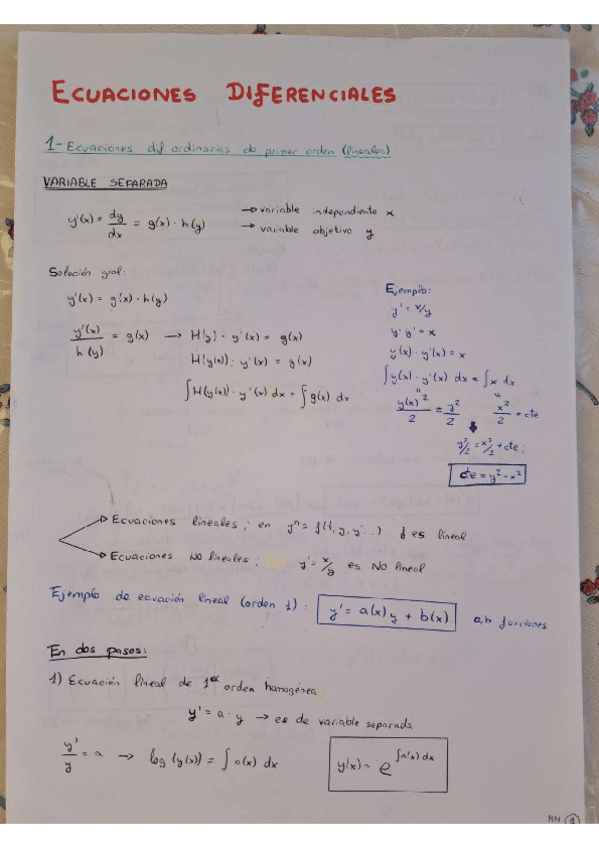 ECUACIONES DIFERENCIALES
1- Ecuaciones dif. ordinarias de primer orden (lineales)
VARIABLE SEPARADA
y'(x) = dy/dx = g(x) · h(y)
→ variable independiente x
→ variable objetivo y
Solución gral:
y'(x) = g(x) · h(y)
y'(x)/h(y) = g(x) → H(y) · y'(x) = g(x)
H(y(x)) · y'(x) = g(x)
∫H(y(x)) · y'(x) dx = ∫g(x) dx
Ejemplo:
y' = x/y
y · y' = x
y(x) · y'(x) = x
∫y(x) · y'(x) dx = ∫x dx
y(x)²/2 = y²/2 x²/2 + cte
y²/2 = x²/2 + cte;
cte = y² - x²
→ Ecuaciones lineales; en yⁿ = f(t, y, y'...) f es lineal
→ Ecuaciones NO lineales; y' = x/y es NO lineal
Ejemplo de ecuación lineal (orden 1): y' = a(x) y + b(x) a,b funciones
En dos pasos:
1) Ecuación lineal de 1er orden homogénea
y' = a · y → es de variable separada
y'/y = a → log (y(x)) = ∫ a(x) dx y(x) = e^∫a(x) dx
MN 1